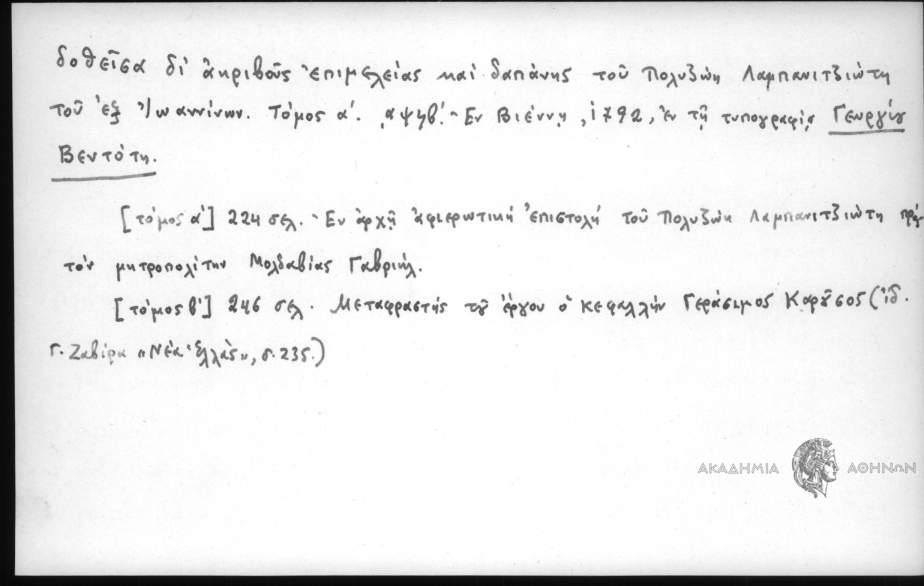 δοθεῖσα δι' ἀκριβοῦς ἐπιμελείας καὶ δαπάνης τοῦ Πολυζώη Λαμπανιτζιώτη
τοῦ ἐξ Ἰωαννίνων. Τόμος α'. ͵αψϟβ'. Ἐν Βιέννῃ, 1792, ἐν τῇ τυπογραφίᾳ Γεωργίου
Βεντότη.
[τόμος α'] 224 σελ. - Ἐν ἀρχῇ ἀφιερωτικὴ ἐπιστολὴ τοῦ Πολυζώη Λαμπανιτζιώτη πρὸς
τὸν μητροπολίτην Μολδαβίας Γαβριήλ.
[τόμος β'] 246 σελ. Μεταφραστὴς τοῦ ἔργου ὁ κεφαλλὴν Γεράσιμος Καροῦσος (ἰδ.
Γ. Ζαβίρα «Νέα Ἑλλὰς», σ. 235.)
ΑΚΑΔΗΜΙΑ ΑΘΗΝΩΝ